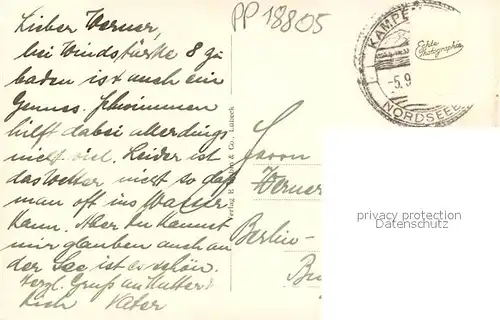 Lieber Werner,
bei Windstärke 8 zu
baden ist auch ein
Genuss. Schwimmen
hilft dabei allerdings
nicht viel. Leider ist
das Wetter nicht so daß
man oft ins Wasser
kann. Aber Du kannst
mir glauben auch an
der See ist es schön.
Herzl. Gruß an Mutter
Dich Vater
PP 18805
& Co., Lübeck
Verlag
KAMPE
-5.9
NORDSEEB
Echte
Photographie
Herrn
Werner
Berlin-
privacy protection
Datenschutz